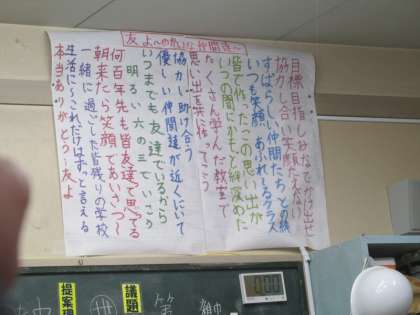 友よ～の大いな仲間達～
目標目指しみなでかけ出せ
協力し合い笑顔たえない
すばらしい仲間たちとの絆
いつも笑顔あふれるクラス
皆で作ったこの思い出が
いつの間にかもっと絆深めた
たくさん学んだ教室で
思い出を共に作ってこう
協力し助け合う
優しい仲間達が近くにいて
いつまでも友達でいるから
明るい六の三でいこう
何百年先も皆友達って思ってる
朝来たら笑顔であいさつし
一緒に過ごした皆残りの学校
生活～これだけはずっと言える
本当ありがとう～友よ
提案理
議題
第
0:00